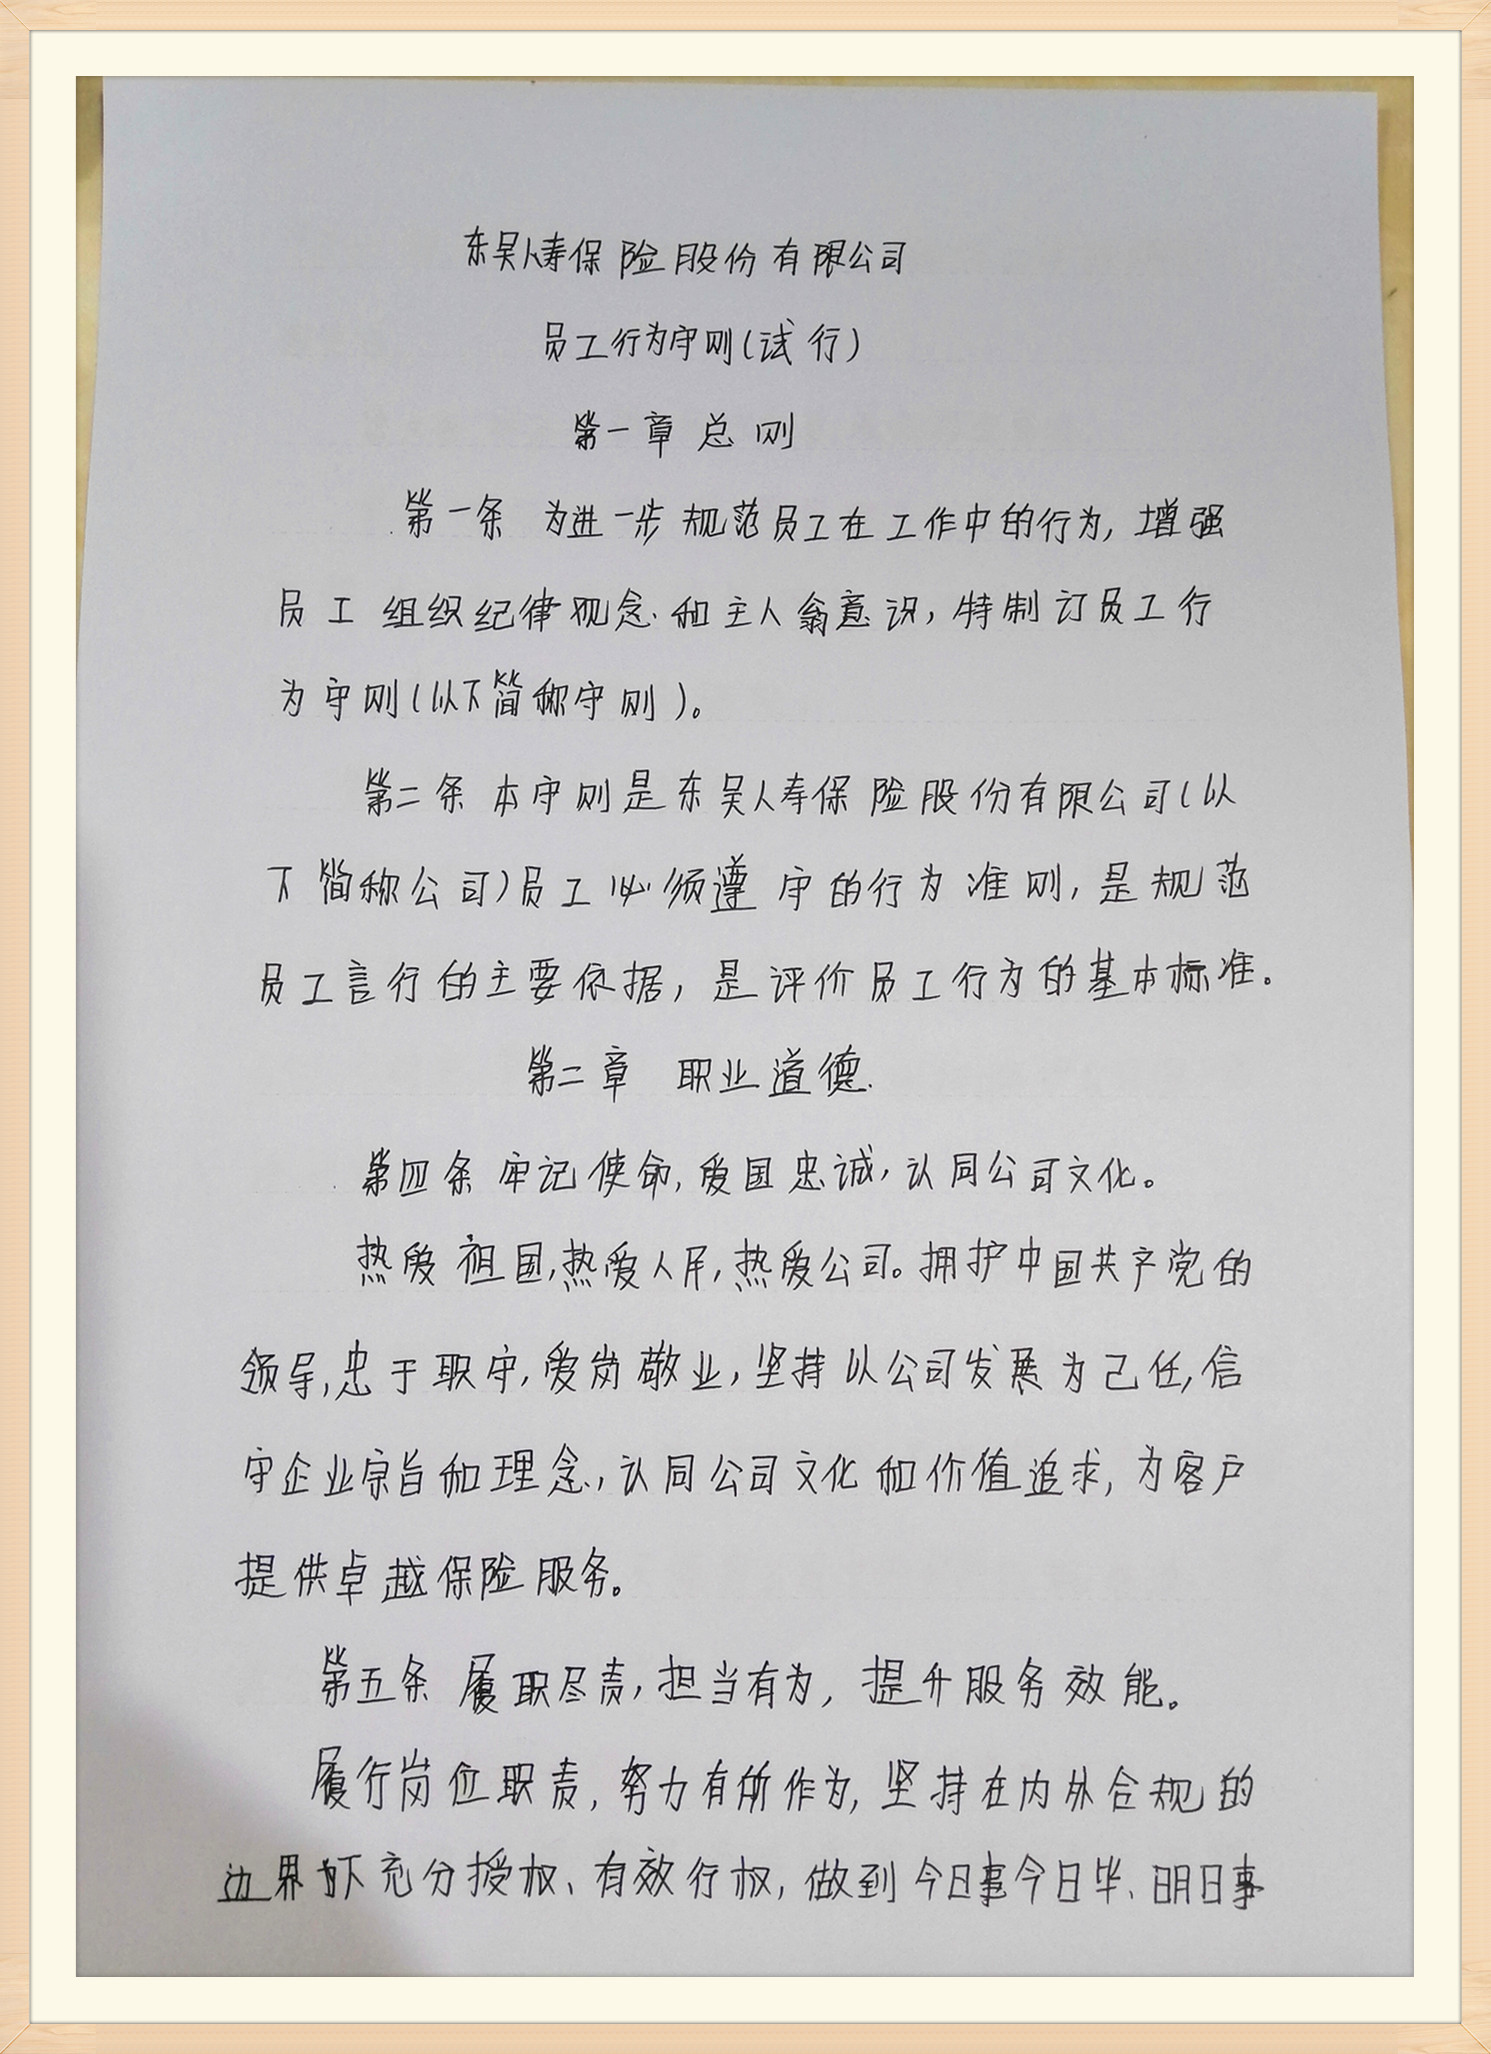 东吴人寿保险股份有限公司
员工行为守则(试行)
第一章 总则
第一条 为进一步规范员工在工作中的行为,增强
员工组织纪律观念和主人翁意识,特制订员工行
为守则(以下简称守则)。
第二条 本守则是东吴人寿保险股份有限公司(以
下简称公司)员工必须遵守的行为准则,是规范
员工言行的主要依据,是评价员工行为的基本标准。
第二章 职业道德
第四条 牢记使命,爱国忠诚,认同公司文化。
热爱祖国,热爱人民,热爱公司。拥护中国共产党的
领导,忠于职守,爱岗敬业,坚持以公司发展为己任,信
守企业宗旨和理念,认同公司文化和价值追求,为客户
提供卓越保险服务。
第五条 履职尽责,担当有为,提升服务效能。
履行岗位职责,努力有所作为,坚持在内外合规的
边界下充分授权、有效行权,做到今日事今日毕、明日事